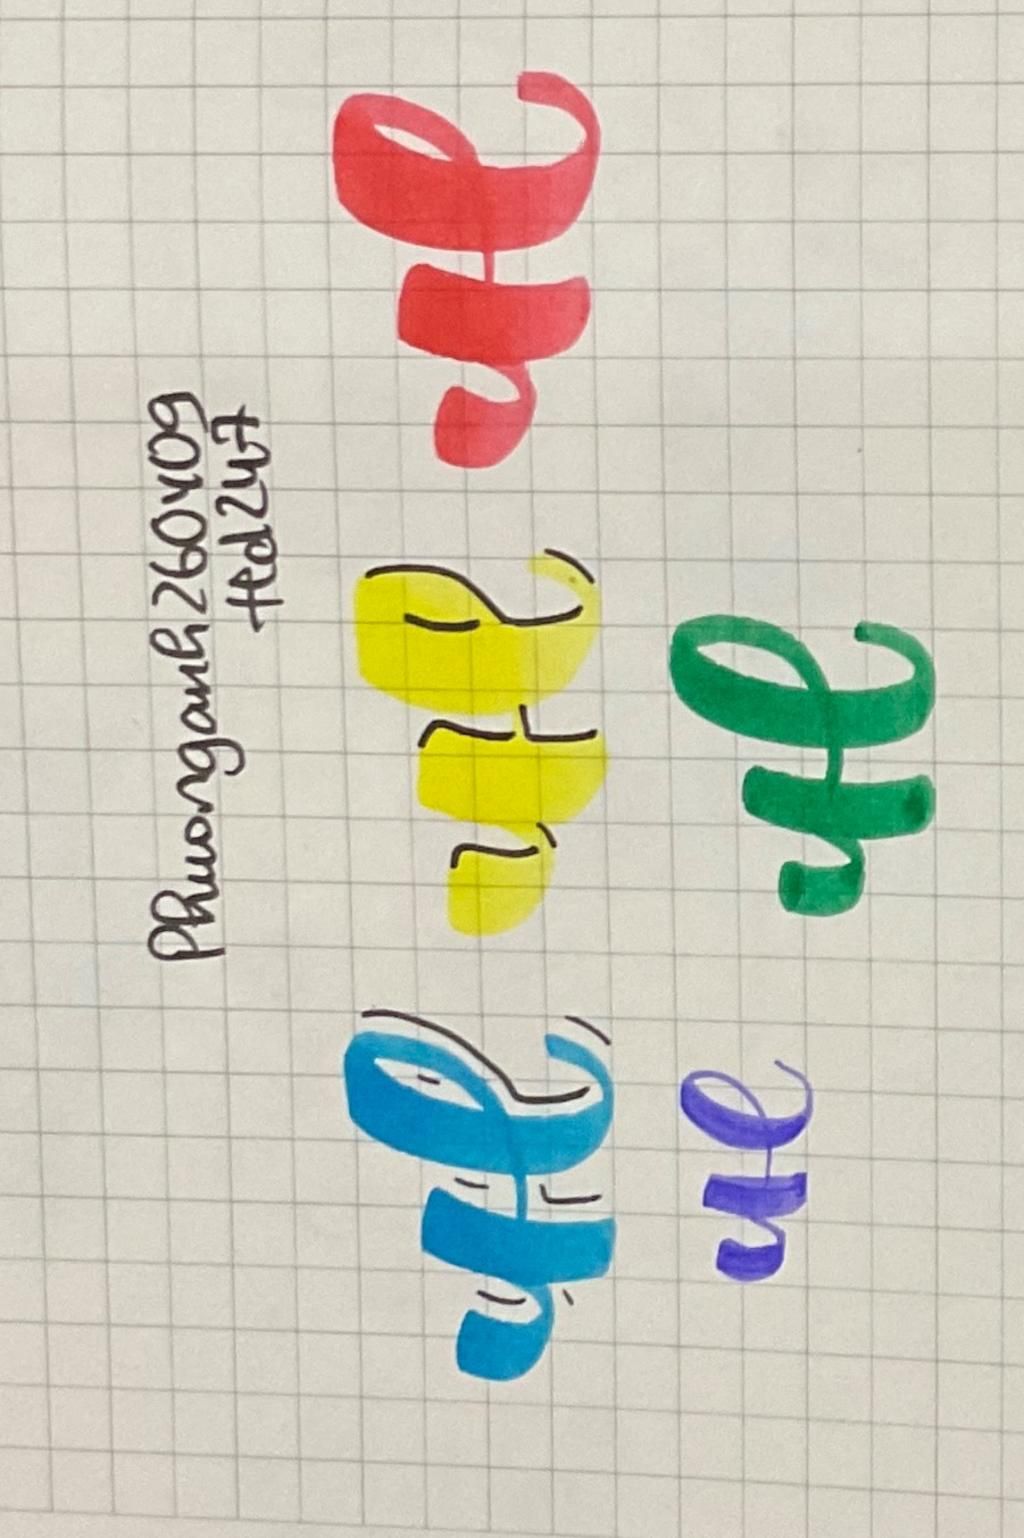 Phuonganh260409
ttd247
H H H
H H